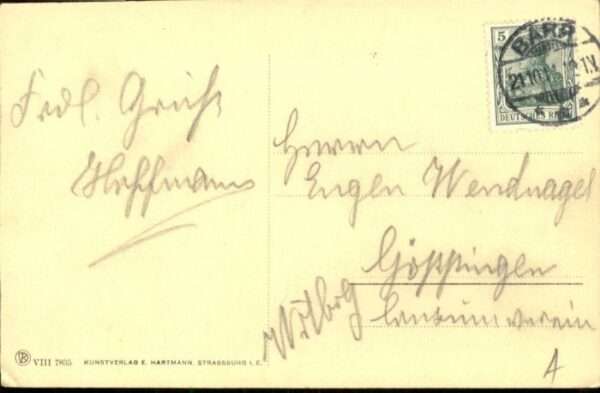 Frdl. Gruß
Hoffmann
5
DEUTSCHES REICH
BARR
21.10.11
Herrn
Eugen Wendnagel
Göppingen
Wttbg
Consumverein
VIII 7865 KUNSTVERLAG E. HARTMANN, STRASSBURG I. E.
A